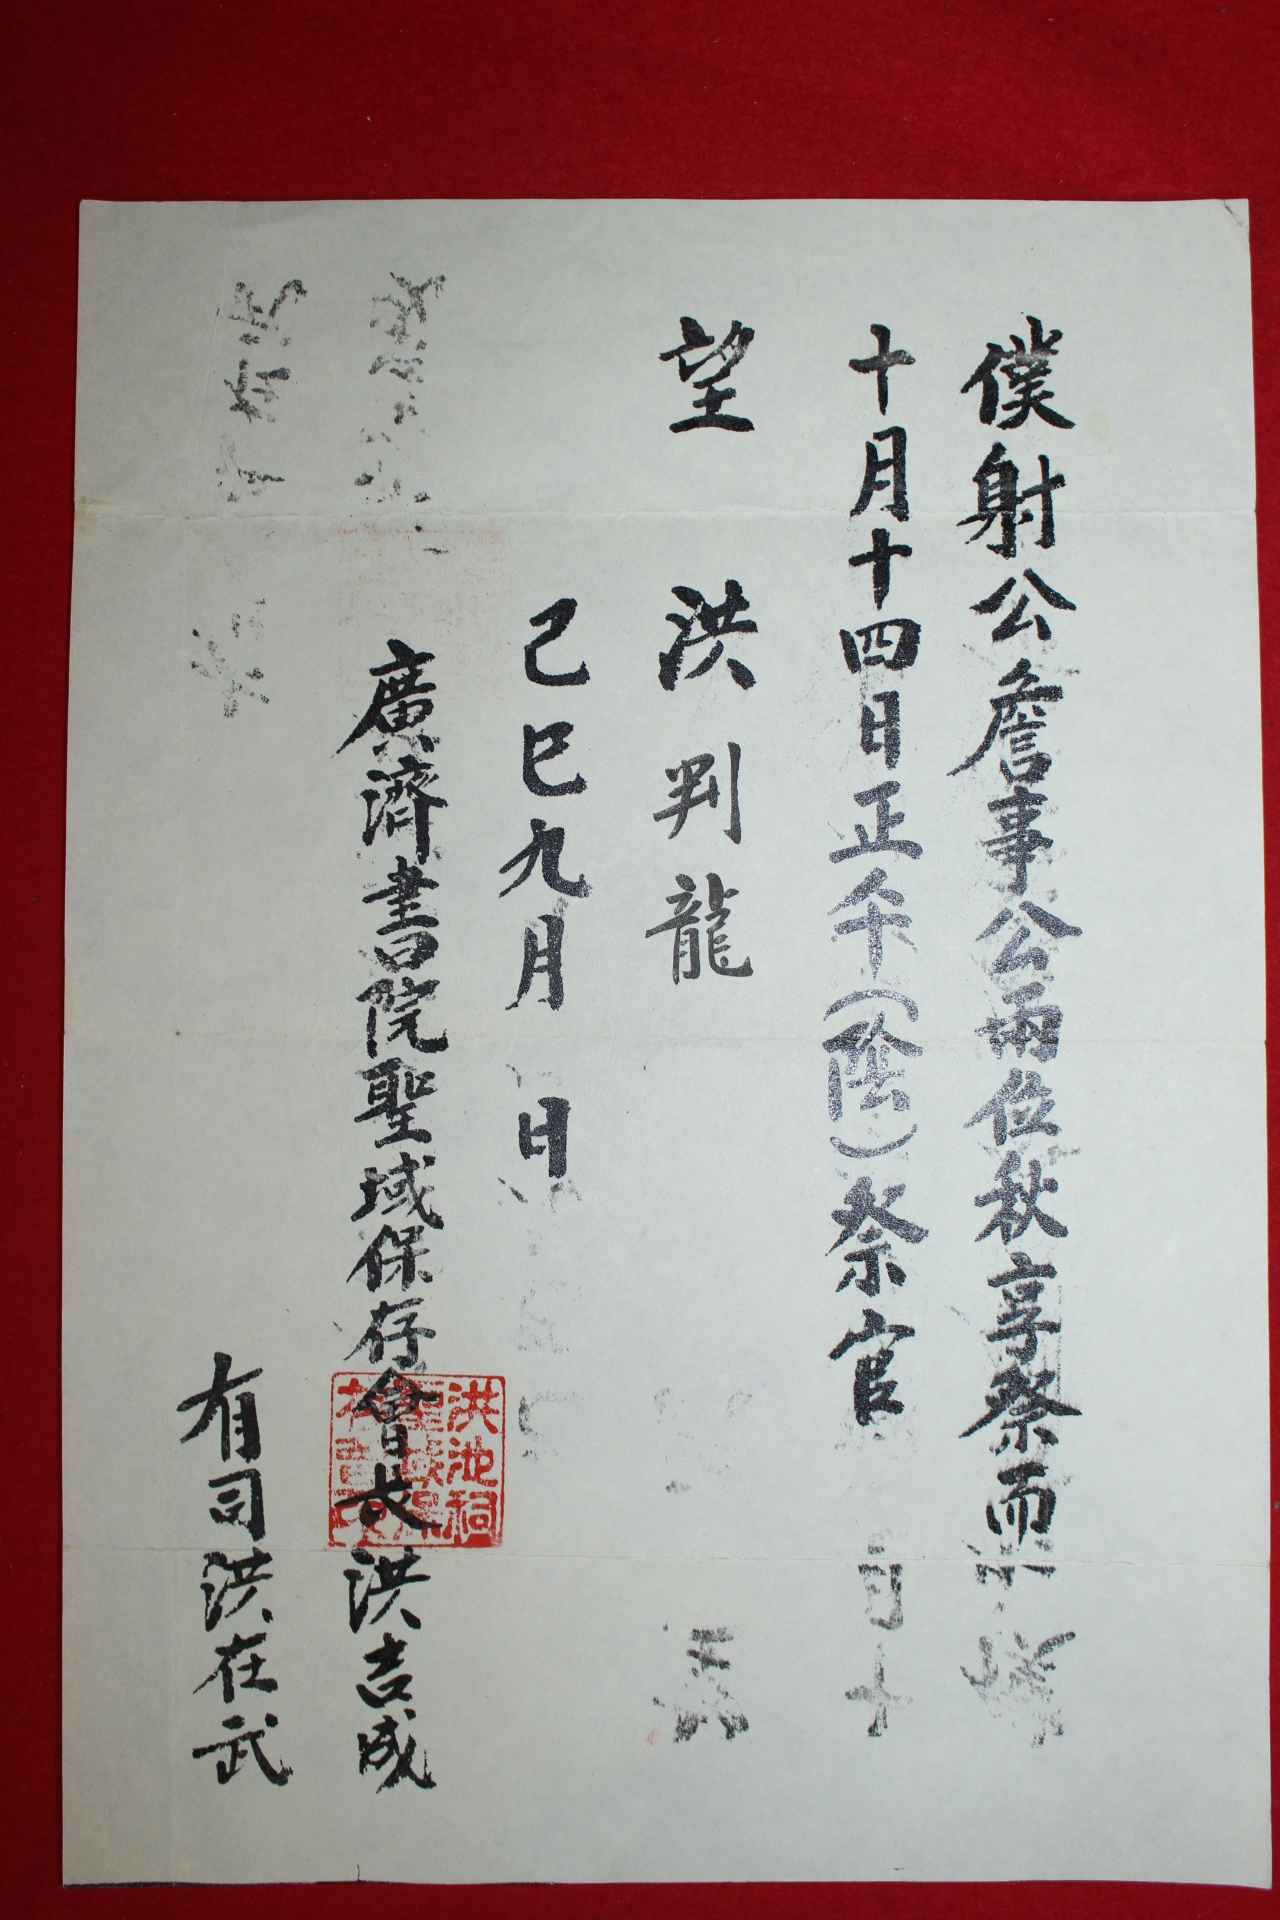 僕射公詹事公兩位秋享祭而
十月十四日正午(陰)祭官
望 洪判龍
己巳九月 日
廣濟書院聖域保存會長 洪吉成
有司 洪在武
洪池祠
聖域保